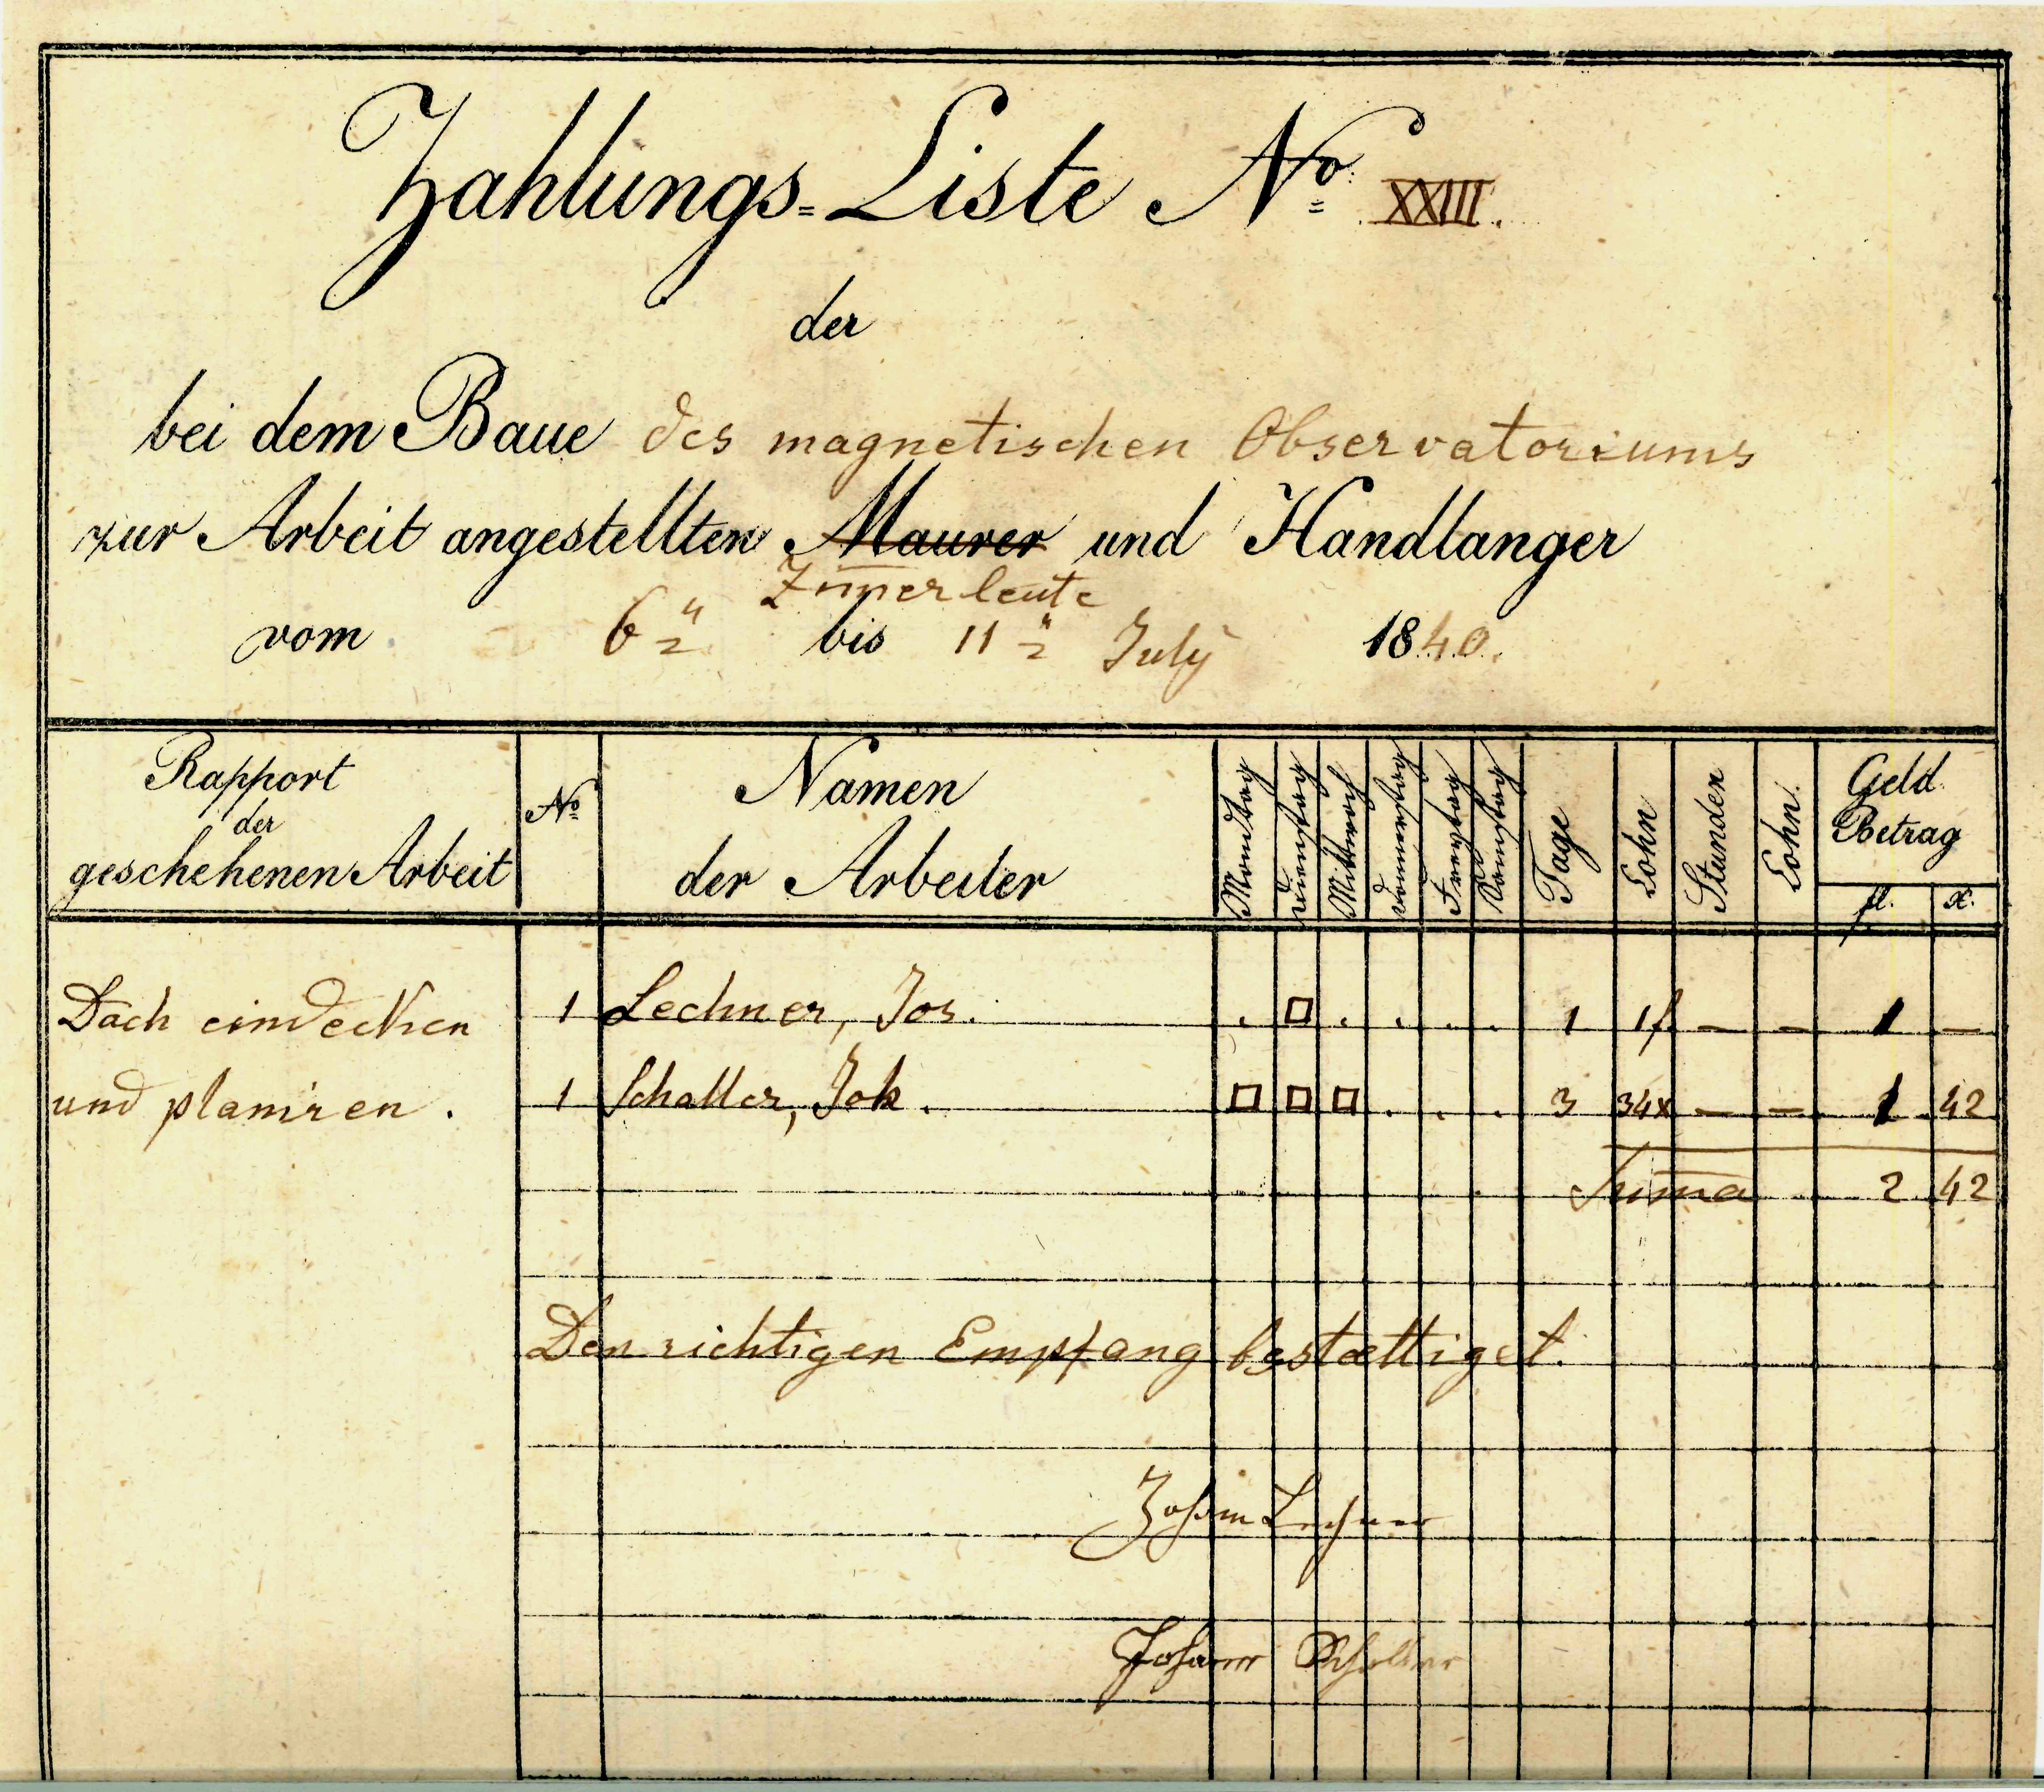 Zahlungs-Liste No. XXIII.
der
bei dem Baue des magnetischen Observatoriums
zur Arbeit angestellten Maurer und Handlanger
Zim̅erleute
vom 6" bis 11" July 1840.
Rapport der geschehenen Arbeit
No
Namen der Arbeiter
Montag
Dienstag
Mittwoch
Donnerstag
Freytag
Samstag
Tage
Lohn
Stunden
Lohn.
Geld Betrag
fl. x.
Dach eindecken 1 Lechner, Jos. . □ . . . . 1 1f — — 1 —
und planiren. 1 Schaller, Joh. □ □ □ . . . 3 34x — — 1 42
Sum̅a 2 42
Den richtigen Empfang bestættiget.
Lechner
Johann Schaller